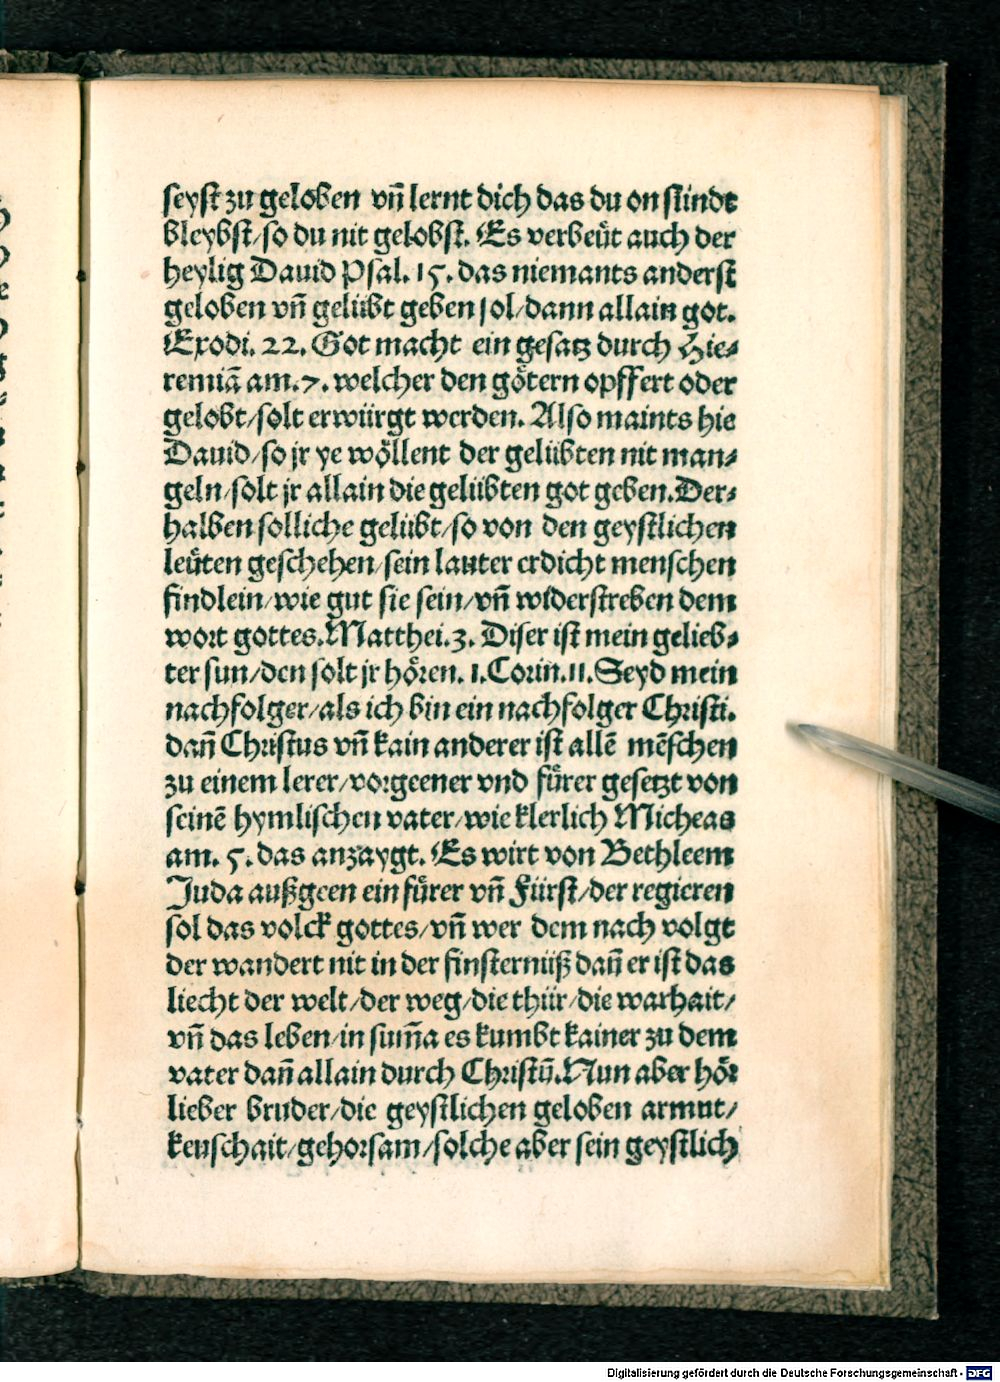 seyst zu geloben vñ lernt dich das du on sünde
bleybst/so du nit gelobst. Es verbeüt auch der
heylig Dauid Psal. 15. das niemants anderst
geloben vñ gelübt geben sol/dann allain got.
Exodi. 22. Got macht ein gesatz durch Hie⸗
remiā am.7. welcher den göttern opffert oder
gelobt/solt erwürgt werden. Also maints hie
Dauid/so jr ye wöllent der gelübten nit man⸗
geln/solt jr allain die gelübten got geben.Der⸗
halben solliche gelübt/so von den geystlichen
leüten geschehen/sein lauter erdicht menschen
findlein/wie gut sie sein/vñ widerstreben dem
wort gottes.Matthei.3. Diser ist mein gelieb⸗
ter sun/den solt jr hören. 1.Corin.11.Seyd mein
nachfolger/als ich bin ein nachfolger Christi.
dañ Christus vñ kain anderer ist allē mēschen
zu einem lerer/vorgeener vnd fürer gesetzt von
seinē hymlischen vater/wie klerlich Micheas
am. 5. das anzaygt. Es wirt von Bethleem
Juda außgeen ein fürer vñ Fürst/der regieren
sol das volck gottes/vñ wer dem nach volgt
der wandert nit in der finsternüß dañ er ist das
liecht der welt/der weg/die thür/die warhait/
vñ das leben/in sum̃a es kumbt kainer zu dem
vater dañ allain durch Christū.Nun aber hör
lieber bruder/die geystlichen geloben armut/
keuschait/gehorsam/solche aber sein geystlich
Digitalisierung gefördert durch die Deutsche Forschungsgemeinschaft - DFG